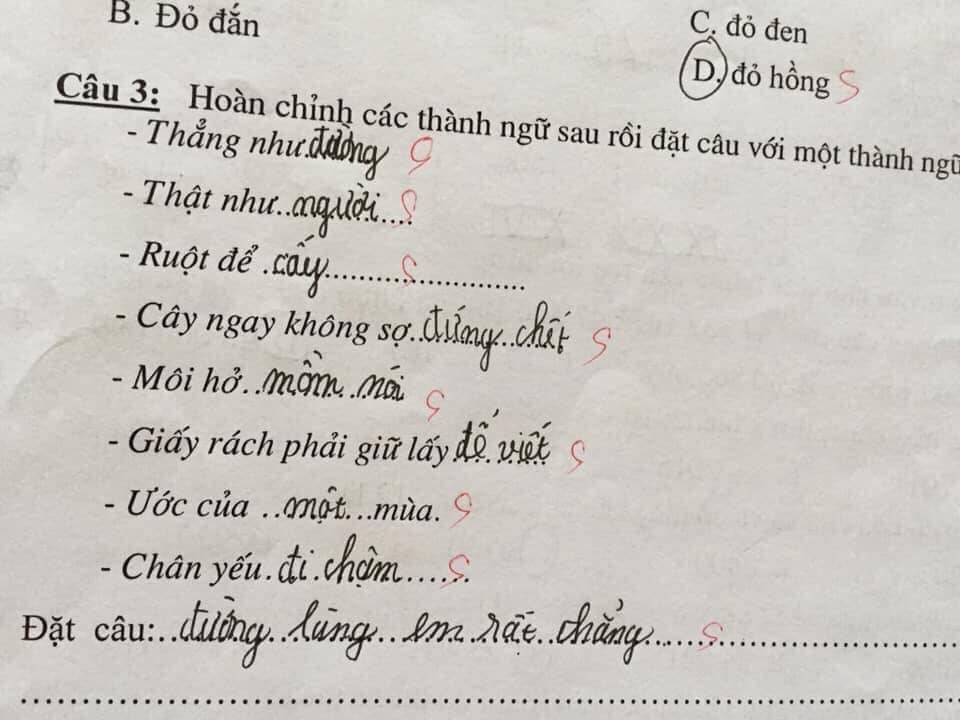 B. Đỏ đắn
C. đỏ đen
D. đỏ hồng S
Câu 3: Hoàn chỉnh các thành ngữ sau rồi đặt câu với một thành ngữ
- Thẳng như.đường S
- Thật như..người.... S
- Ruột để .cấy........................ S
- Cây ngay không sợ..đứng..chết S
- Môi hở..mồm..nói S
- Giấy rách phải giữ lấy.để.viết S
- Ước của ..một...mùa. S
- Chân yếu.đi.chậm...... S
Đặt câu:..đường..làng..em..rất..chẳng...... S